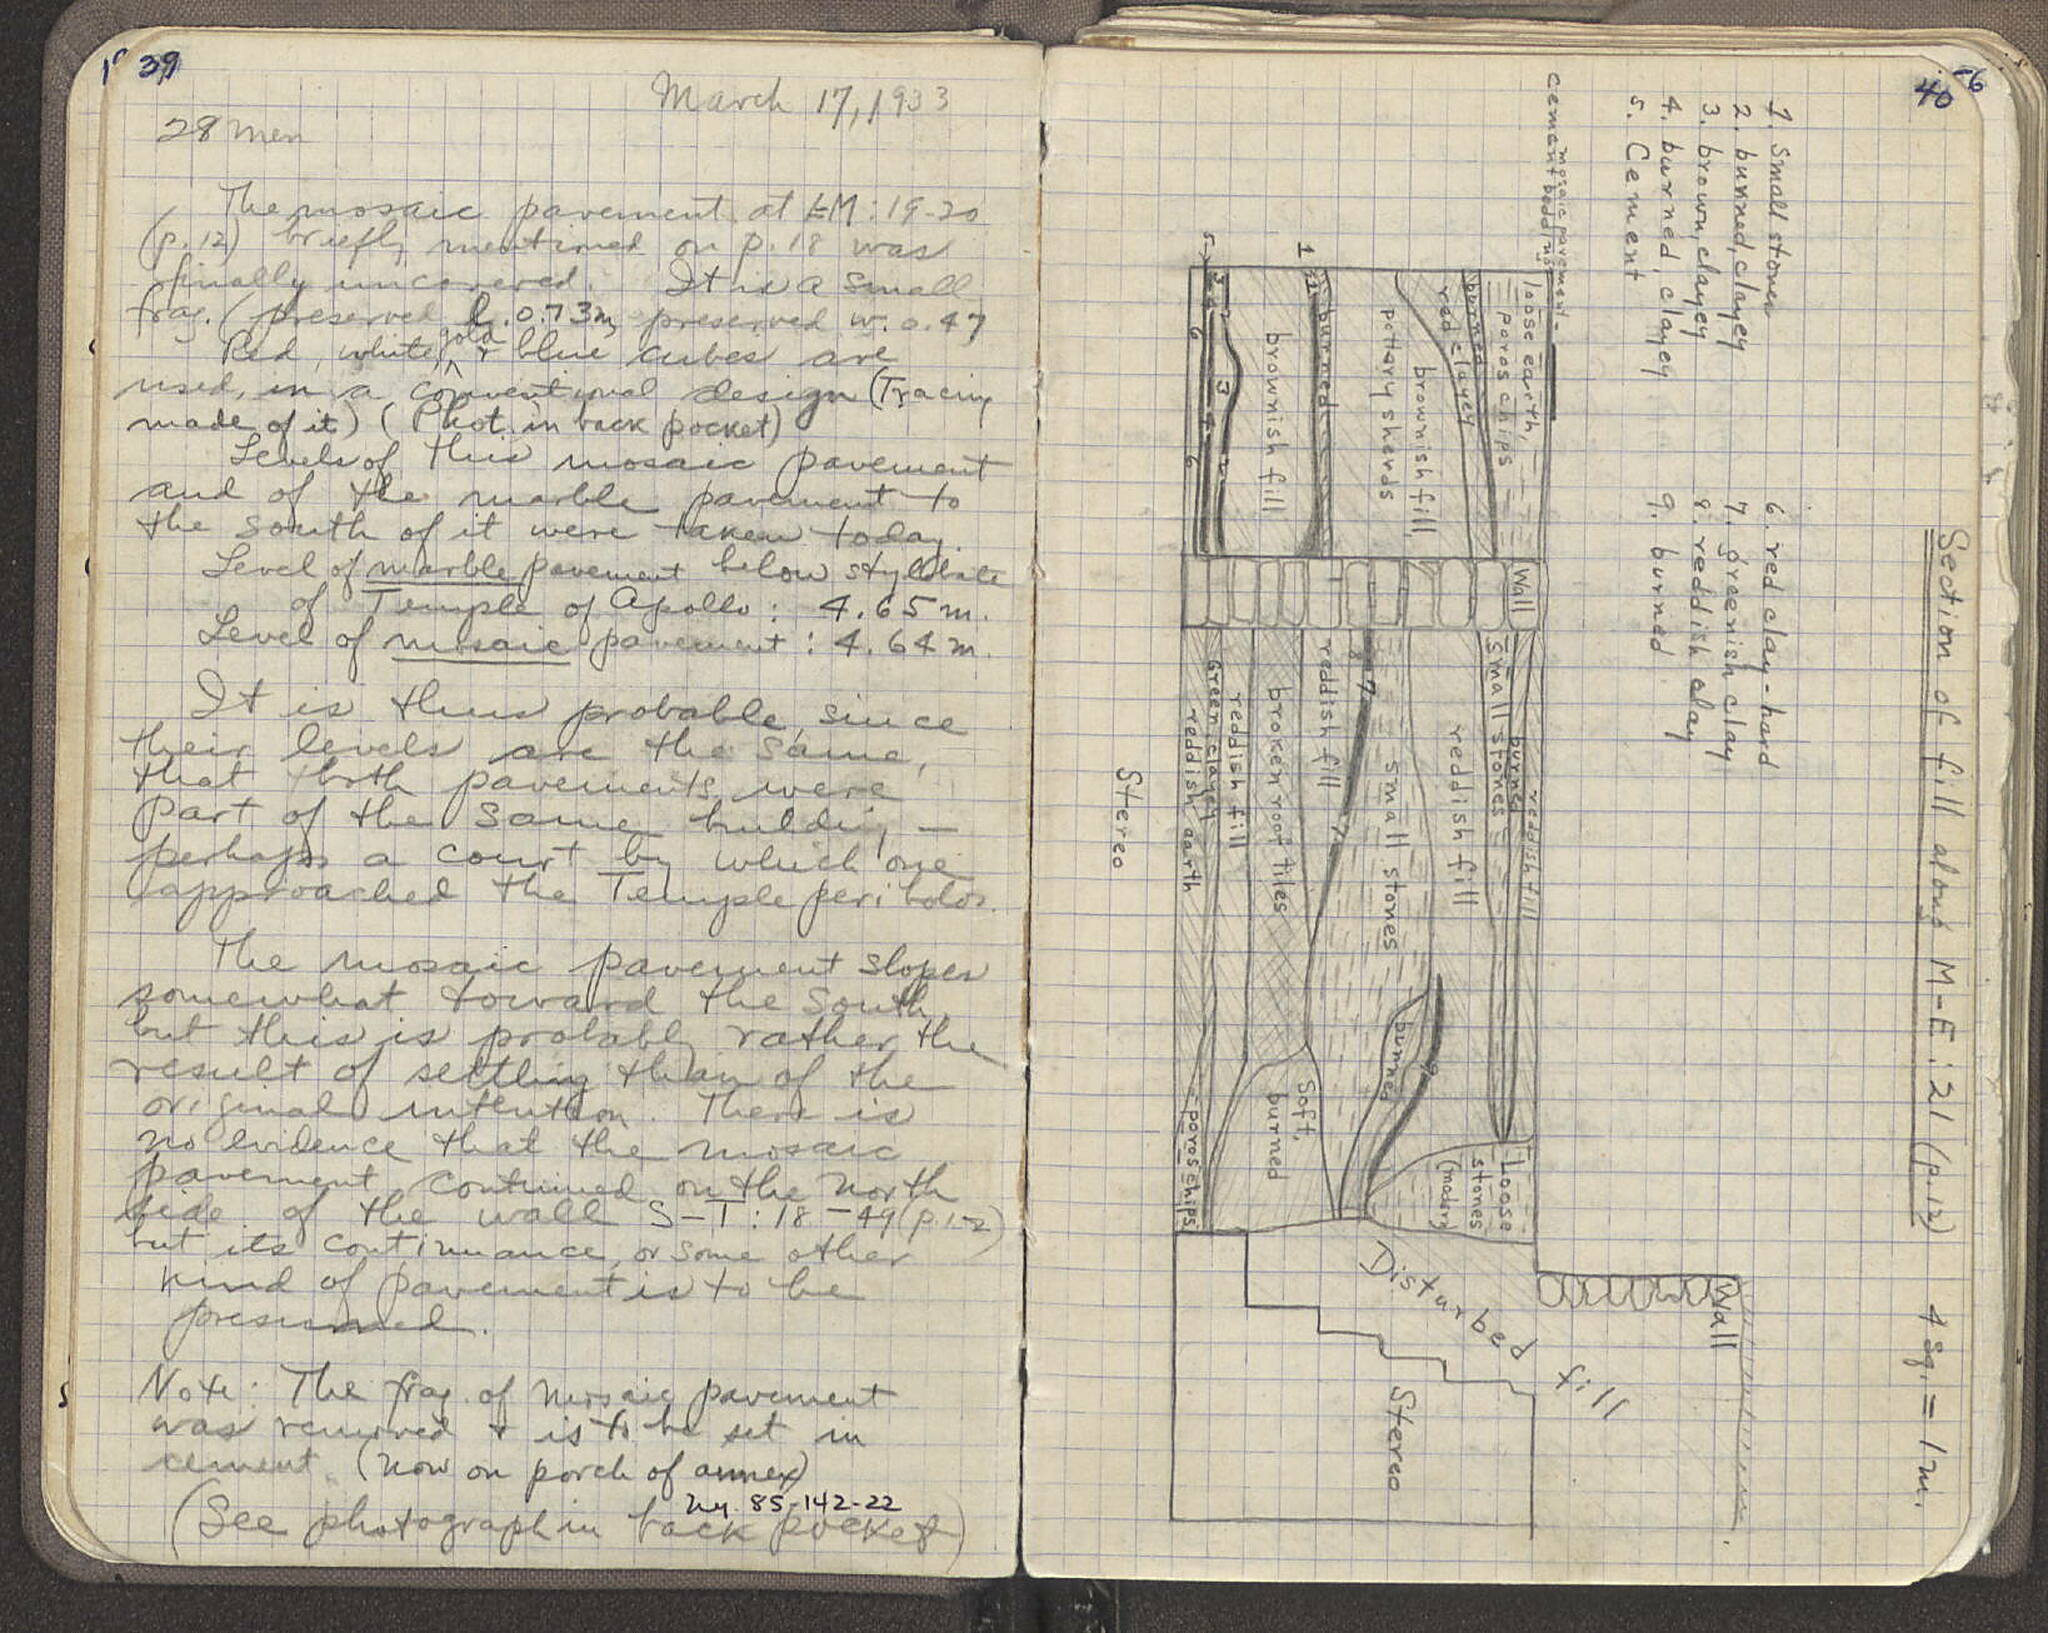 39
March 17, 1933
28 men
The mosaic pavement at ŁM:19-20
(p.12) briefly mentioned on p. 18 was
finally uncovered. It is a small
frag. (preserved l. 0.73m, preserved w. 0.47
gold
Red, white, ^ + blue cubes are
used, in a conventional design (Tracing
made of it) (Phot. in back pocket)
Levels of this mosaic pavement
and of the marble pavement to
the south of it were taken today.
Level of marble pavement below stylobate
of Temple of Apollo: 4.65 m.
Level of mosaic pavement: 4.64 m.
It is thus probable, since
their levels are the same,
that both pavements were
part of the same building —
perhaps a court by which one
approached the Temple peribolos.
The mosaic pavement slopes
somewhat toward the south,
but this is probably rather the
result of settling than of the
original intention. There is
no evidence that the mosaic
pavement continued on the north
side of the wall S-T:18-49 (p.12)
but its continuance, or some other
kind of pavement is to be
presumed.
Note: The frag. of mosaic pavement
was removed & is to be set in
cement. (Now on porch of annex)
85-142-22
(See photograph in back pocket)
40
Section of fill along M-E:21 (p.12) 4 sq. = 1 m.
1. small stones
2. burned, clayey
3. brown, clayey
4. burned, clayey
5. Cement
6. red clay-hard
7. greenish clay
8. reddish clay
9. burned
mosaic pavement
cement bedding
loose earth,
poros chips
burned
red clayey
brownish fill,
pottery sherds
burned
brownish fill
1
1
5
3
2
6
3
4
2
6
Wall
reddish fill
burned
small stones
reddish fill
small stones
8
7
7
reddish fill
broken roof tiles
reddish fill
Green clayey
reddish earth
Stereo
burned
9
Soft,
burned
poros chips
Loose
stones
(modern)
Disturbed fill
Wall
Stereo